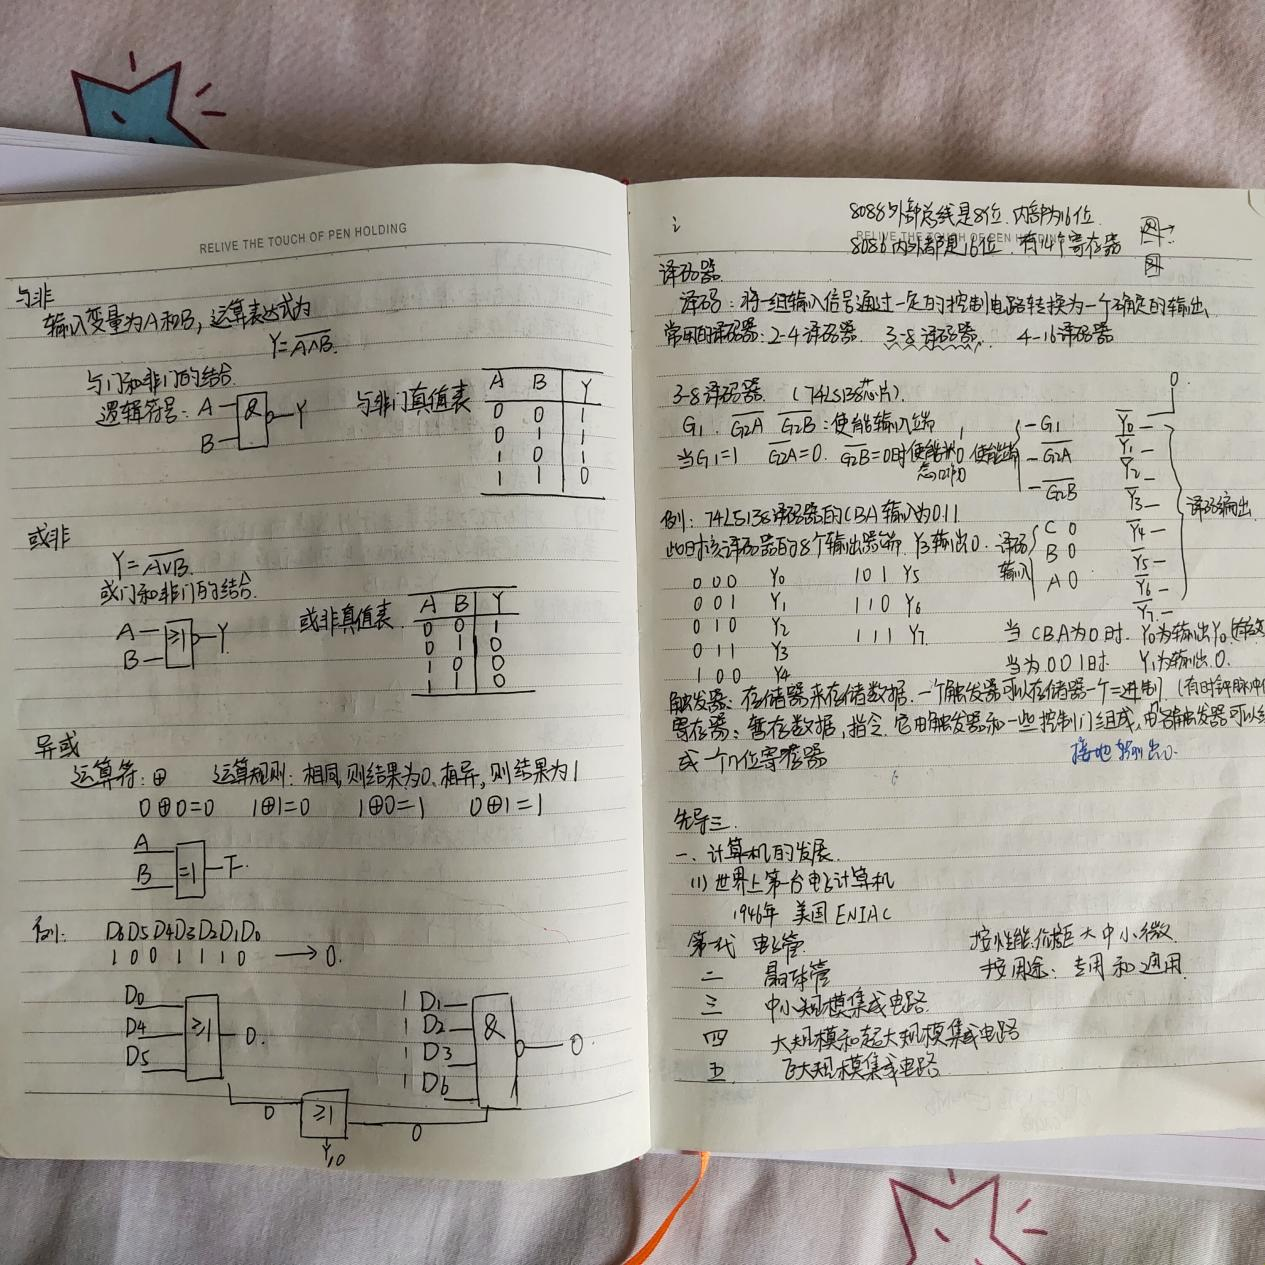 RELIVE THE TOUCH OF PEN HOLDING
与非
输入变量为A和B，运算表达式为
Y=\overline{A∧B}.
与门和非门的结合.
逻辑符号: A & Y
B
与非门真值表
A B Y
0 0 1
0 1 1
1 0 1
1 1 0
或非
Y=\overline{A∨B}.
或门和非门的结合.
A ≥1 Y
B
或非真值表.
A B Y
0 0 1
0 1 0
1 0 0
1 1 0
异或
运算符: ⊕ 运算规则: 相同, 则结果为0. 相异, 则结果为1
0⊕0=0 1⊕1=0 1⊕0=1 0⊕1=1
A
B =1 F
例: D6D5D4D3D2D1D0
1 0 0 1 1 1 0 → 0.
D0
D4 ≥1 0.
D5
1 D1
1 D2 &
1 D3 0
1 D6
0 ≥1 0
Y,0
8088外部总线是8位. 内部为16位
RELIVE THE TOUCH OF PEN HOLDING
8086内外都是16位. 有14个寄存器
译码器
译码: 将一组输入信号通过一定的控制电路转换为一个确定的输出
常用的译码器: 2-4译码器. 3-8译码器. 4-16译码器
3-8译码器. (74LS138芯片).
G1. \overline{G2A} \overline{G2B}: 使能输入端
当G1=1 \overline{G2A}=0. \overline{G2B}=0时使能
G1
\overline{G2A}
\overline{G2B}
例: 74LS138译码器的CBA输入为011
此时该译码器的8个输出 Y3输出0.
译码
输入
C 0
B 0
A 0
0
\overline{Y0}
\overline{Y1}
\overline{Y2}
\overline{Y3}
\overline{Y4}
\overline{Y5}
\overline{Y6}
\overline{Y7}
译码输出
0 0 0 Y0 1 0 1 Y5
0 0 1 Y1 1 1 0 Y6
0 1 0 Y2 1 1 1 Y7
0 1 1 Y3
1 0 0 Y4
当CBA为0时. Y0为输出
当为001时 Y1为输出0.
触发器: 存储器来存储数据. 一个触发器可以存储器一个二进制. (有时钟脉冲
寄存器: 暂存数据, 指令. 它由触发器和一些控制门组成, 触发器可以
或一个n位寄存器
接地 输出0.
先导三.
一、计算机的发展.
(1) 世界上第一台电子计算机
1946年 美国 ENIAC
第一代 电子管
二 晶体管
三 中小规模集成电路.
四 大规模和超大规模集成电路
五. 大规模集成电路
按性能. 大 中 小 微
按用途: 专用 和 通用